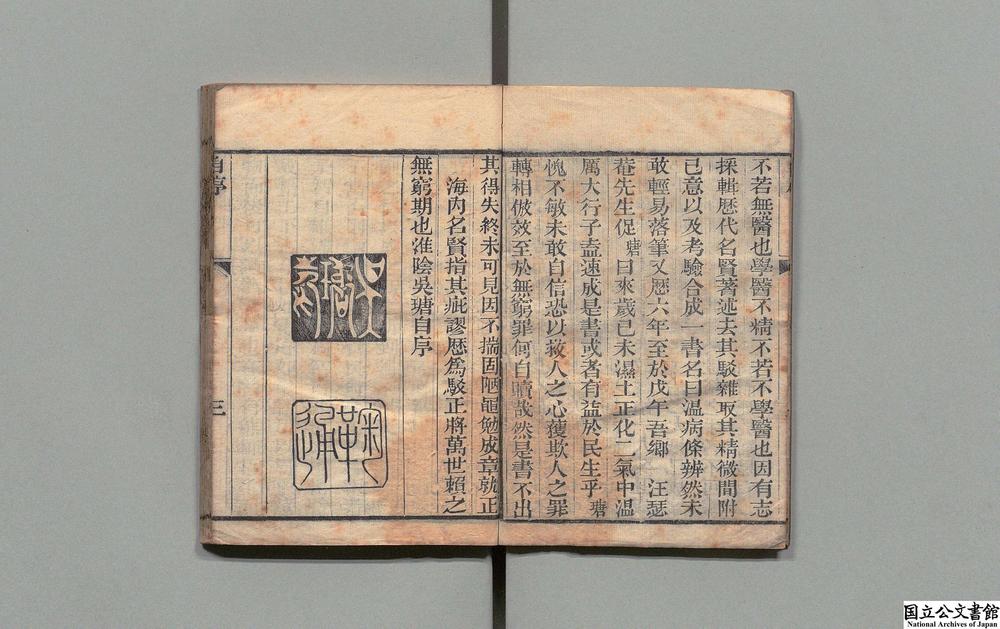 不若無醫也學醫不精不若不學醫也因有志
採輯歴代名賢著述去其駁雜取其精微間附
已意以及考驗合成一書名曰温病條辨然未
敢輕易落筆又歴六年至於戊午吾鄉 汪瑟
菴先生促瑭曰來歲已未濕土正化二氣中温
厲大行子盍速成是書或者有益於民生乎瑭
愧不敏未敢自信恐以救人之心獲欺人之罪
轉相倣效至於無窮罪何自贖哉然是書不出
其得失終未可見因不揣固陋黽勉成章就正
海內名賢指其疵謬歴爲駁正將萬世賴之
無窮期也淮陰吳瑭自序
自序
三
国立公文書館
National Archives of Japan